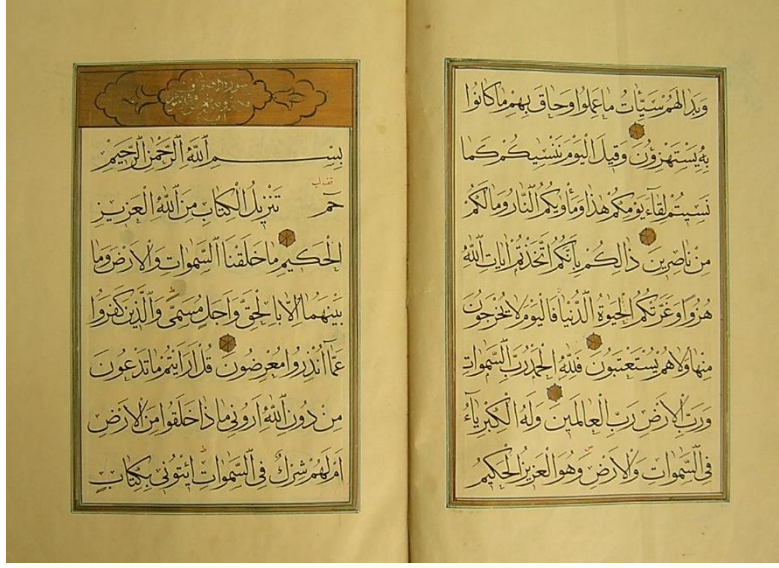 وبدا لهم سيّات ما عملوا وحاق بهم ما كانوا
به يستهزؤن وقيل اليوم ننسيكم كما
نسيتم لقاء يومكم هذا ومأويكم النار وما لكم
من ناصرين ذالكم بانكم اتخذتم ايات الله
هزوا وغرتكم الحيوة الدنيا فاليوم لا يخرجون
منها ولا هم يستعتبون فلله الحمد رب السموات
ورب الارض رب العالمين وله الكبرياء
في السموات والارض وهو العزيز الحكيم
بسم الله الرحمن الرحيم
حم تنزيل الكتاب من الله العزيز
الحكيم ما خلقنا السموات والارض وما
بينهما الا بالحق واجل مسمى والذين كفروا
عما انذروا معرضون قل ارايتم ما تدعون
من دون الله اروني ماذا خلقوا من الارض
ام لهم شرك في السموات ايتوني بكتاب